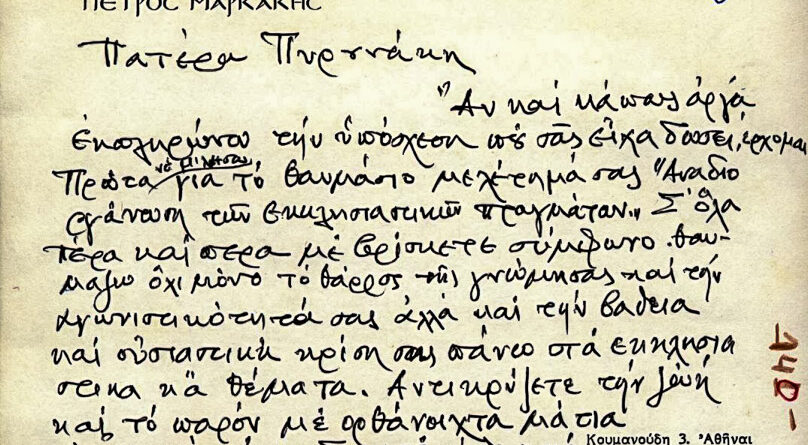 ΠΕΤΡΟΣ ΜΑΡΚΑΚΗΣ
Πατέρα Πυρουνάκη
Ἂν καί κάπως ἀργά
ἐκπληρώνω τήν ὑπόσχεση πού σᾶς εἶχα δώσει, ἔρχομαι
Πρῶτα νά μιλήσω γιά τό θαυμάσιο μελέτημά σας "Αναδιο
ργάνωση τῶν ἐκκλησιαστικῶν πραγμάτων". Σ' ὅλα
πέρα καί πέρα μέ βρίσκετε σύμφωνο. Θαυ-
μάζω ὄχι μόνο τό θάρρος τῆς γνώμης σας καί τήν
ἀγωνιστικότητά σας ἀλλά καί τήν βαθειά
καί οὐσιαστική κρίση σας πάνω στά εκκλησια
στικά θέματα. Αντικρύζετε τήν ζωή
καί τό παρόν μέ ορθάνοιχτα μάτια
Κουμανούδη 3, Ἀθῆναι
-140-